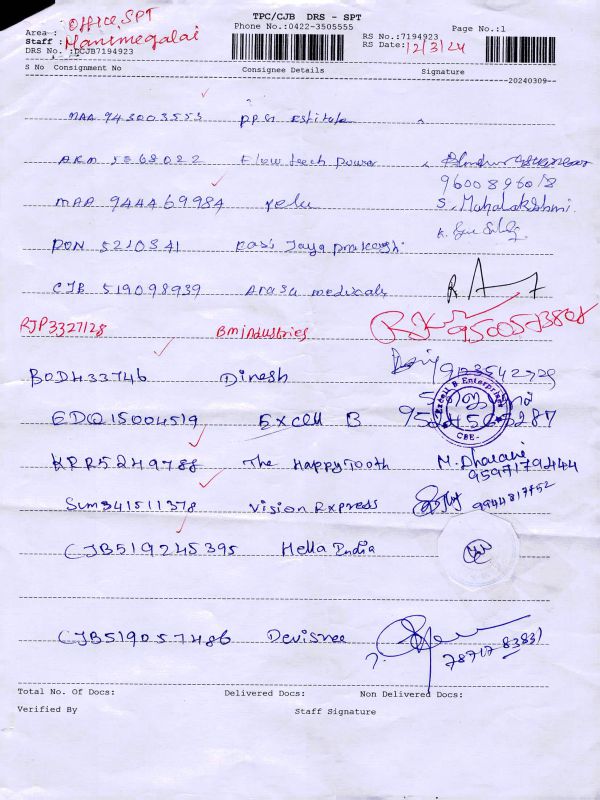 TPC/CJB DRS - SPT
Phone No.:0422-3505555
Page No.:1
Office, SPT
Area :
Staff : Manimegalai
DRS No. :DCJB7194923
RS No.:7194923
RS Date: 12/3/24
S No Consignment No Consignee Details Signature
20240309
MAA 943003553 PPG Estitute
AKM 5068022 Flow teech power
9600896018
MAA 944469984 velu S. Mahalakshmi.
PON 5210341 Kasi Jaya prakash
CJB 519098939 Arasu medicals
RJP3327128 Bm industries RK 9500573808
BODH33746 Dinesh 9123542729
EDQ15004519 Excell B
Excell B Enterprises
CBE-
KRR5249788 The Happy Tooth M. Dharani
9597179444
SUM341511378 Vision Express 9944817752
CJB519245395 Hella India
CJB519057486 Devisree
78717 83831
Total No. Of Docs: Delivered Docs: Non Delivered Docs:
Verified By Staff Signature